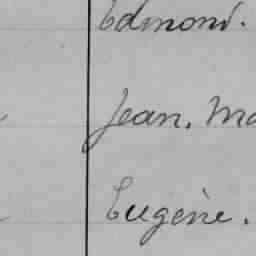 Edmond.
Jean. Ma
Eugène.